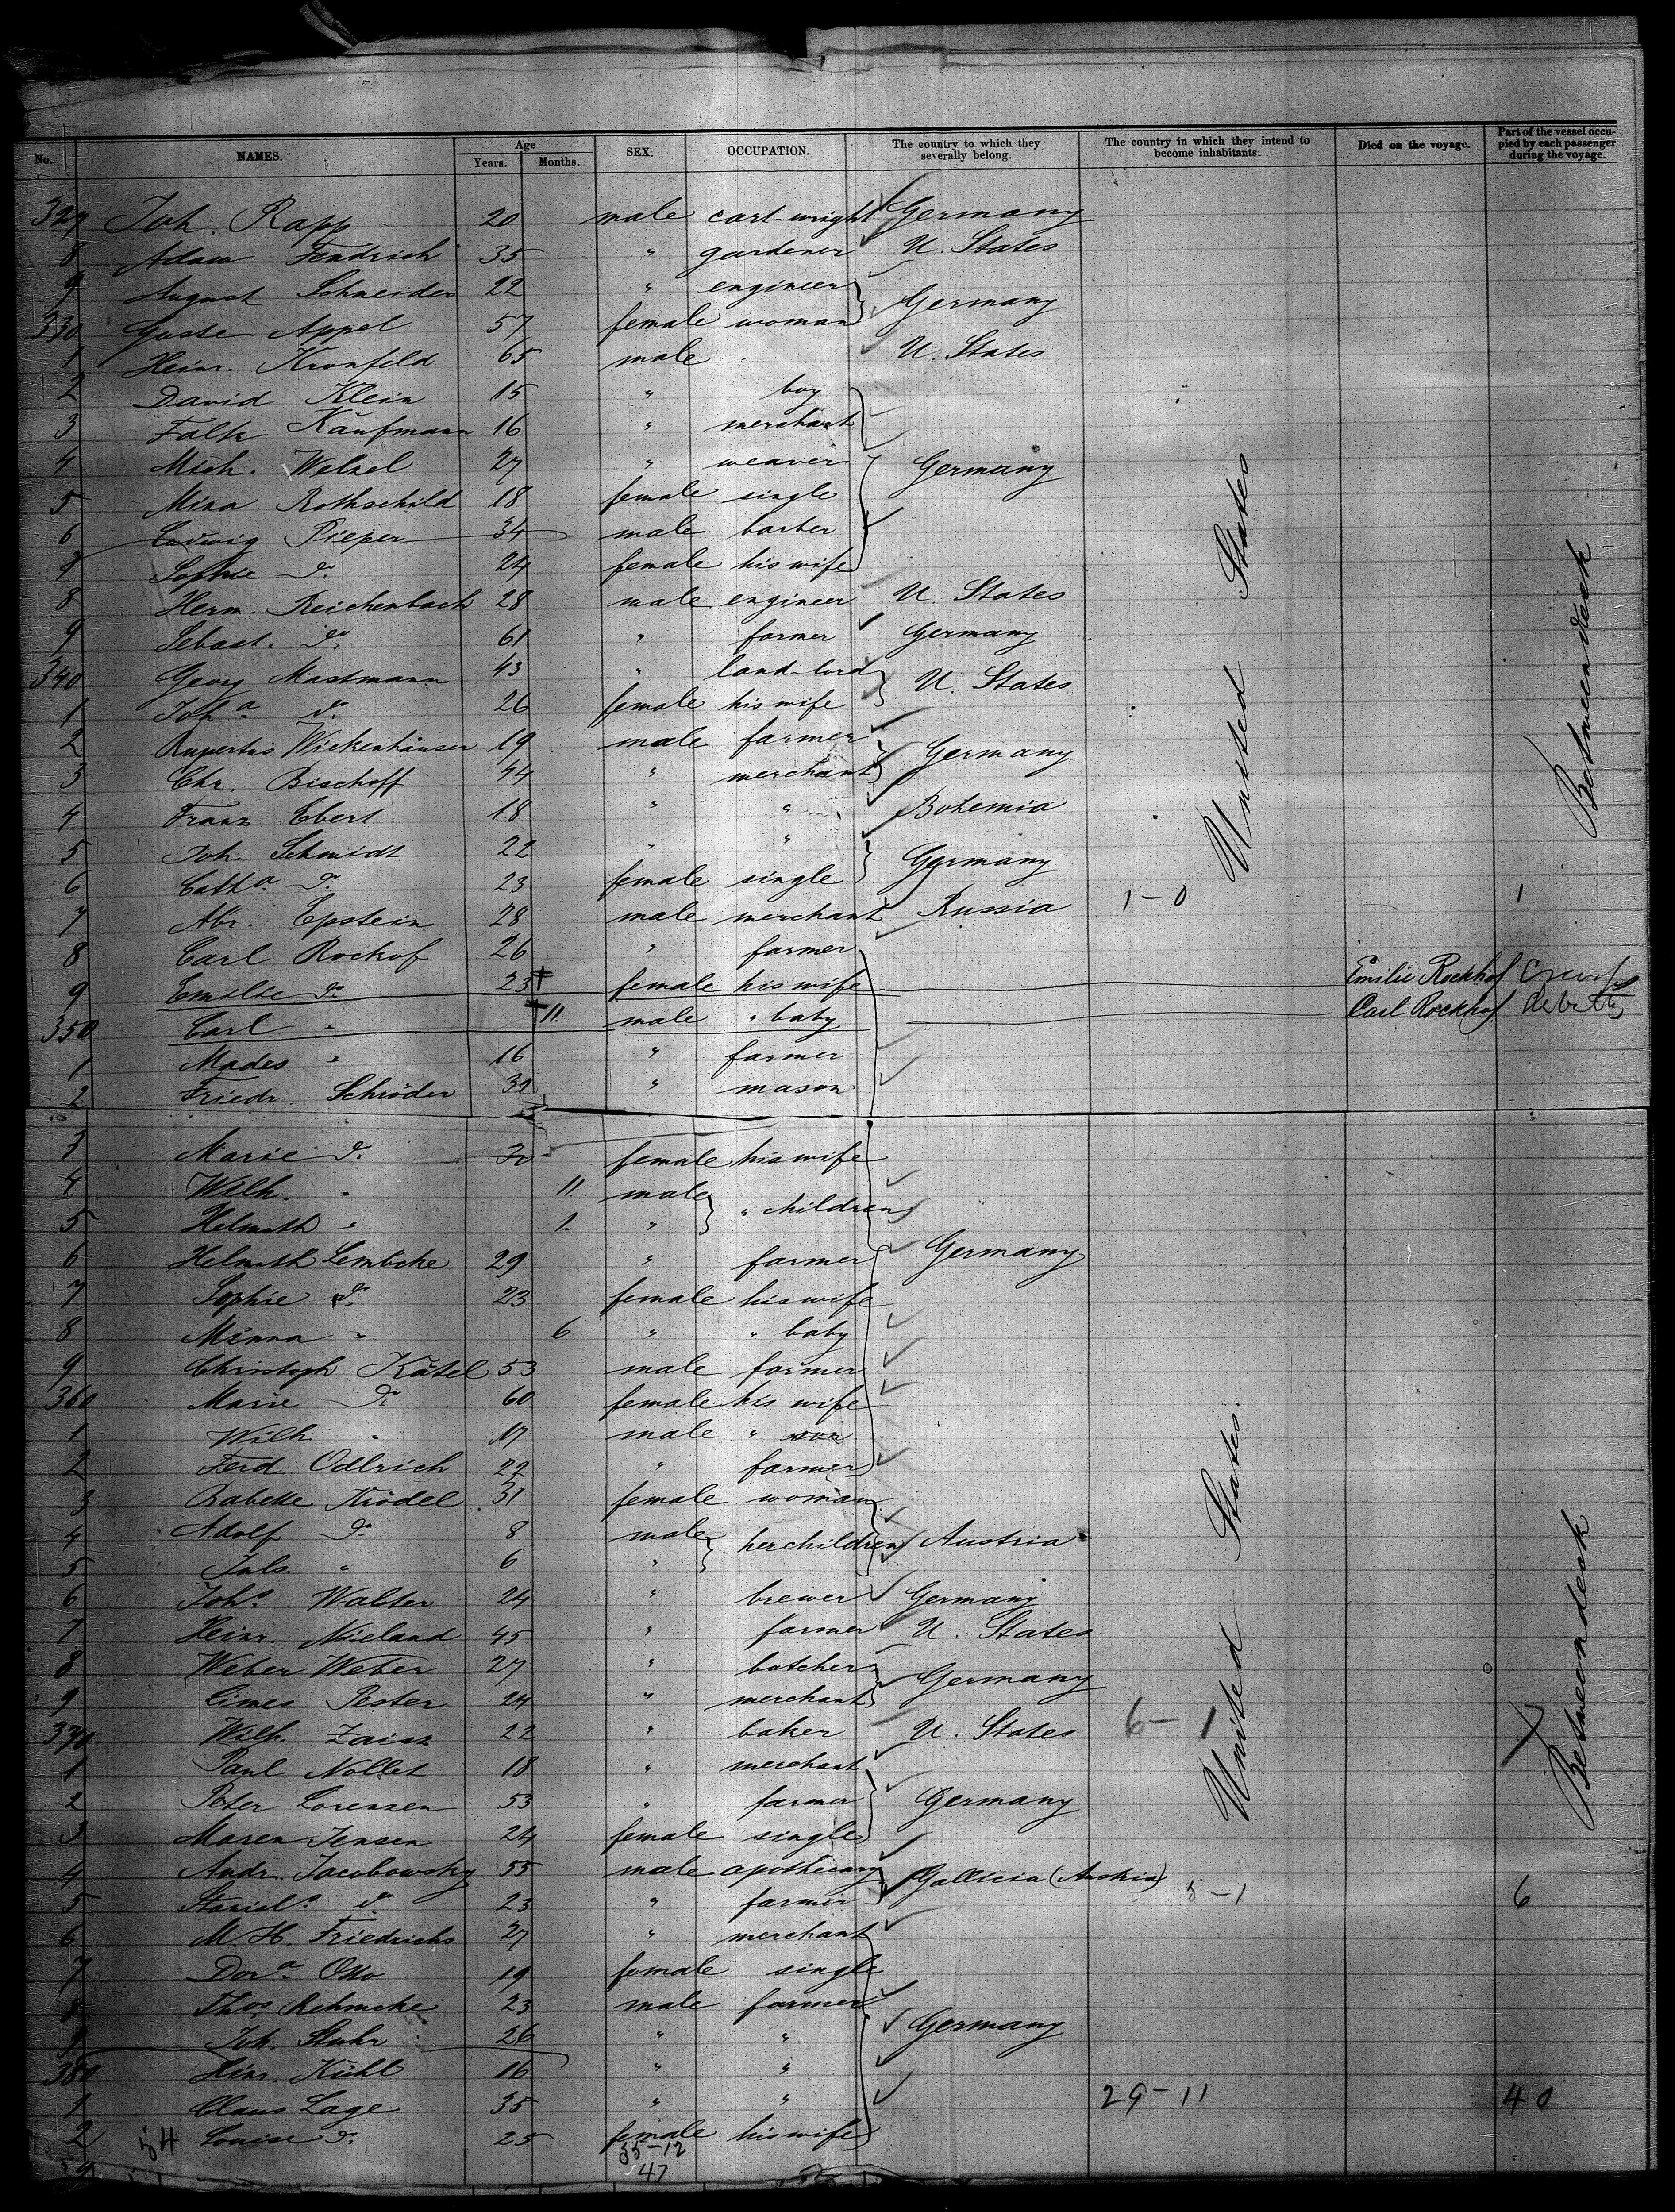 No. NAMES. Age Years. Months. SEX. OCCUPATION. The country to which they severally belong. The country in which they intend to become inhabitants. Died on the voyage. Part of the vessel occupied by each passenger during the voyage.
327 Joh. Rapp 20 male cart-wright Germany
8 Adam Fendrich 35 " gardener U. States
9 August Schneider 22 " engineer
330 Guste Appel 57 female woman Germany
1 Heinr. Kronfeld 65 male U. States
2 David Klein 15 " boy
3 Falk Kaufmann 16 " merchant
4 Mich. Welzel 27 " weaver Germany
5 Mina Rothschild 18 female single
6 Ludwig Pieper 34 male barber
7 Sophie do. 24 female his wife
8 Herm. Reichenbach 28 male engineer U. States
9 Sebast. do. 61 " farmer Germany
340 Georg Mastmann 43 " land-lord U. States
1 Joha. do. 26 female his wife
2 Rupertus Wickenhäuser 19 male farmer Germany
3 Chr. Bischoff 44 " merchant
4 Franz Ebert 18 " " Bohemia
5 Joh. Schmidt 22 " " Germany
6 Catha. do. 23 female single
7 Abr. Epstein 28 male merchant Russia 1-0 1
8 Carl Rockof 26 " farmer
9 Emilie do. 23 † female his wife Emilie Rockhof
350 Carl " † 11 male " baby Carl Rockhof debility
1 Mades " 16 " farmer
2 Friedr. Schröder 32 " mason
United States
Betweendeck
3 Marie do. 30 female his wife
4 Wilh. " 11 male " children
5 Helmuth " 1 "
6 Helmuth Lembcke 29 " farmer Germany
7 Sophie do. 23 female his wife
8 Minna " 6 " " baby
9 Christoph Kätel 53 male farmer
360 Marie do. 60 female his wife
1 Wilh. " 17 male " son
2 Ferd. Odlrich 22 " farmer
3 Babette Krödel 31 female woman
4 Adolf do. 8 male her children Austria
5 Juls. " 6 "
6 Johs. Walter 24 " brewer Germany
7 Heinr. Nieland 45 " farmer U. States
8 Weber Weber 27 " butcher Germany
9 Pester 24 " merchant
370 Wilh. Zaisz 22 " baker U. States 6-1
1 Paul Nollet 18 " merchant
2 Peter Lorenzen 53 " farmer Germany
3 Maren Jensen 24 female single
4 Andr. Jacobowsky 55 male apothecary Gallicia (Austria)
5 do. 23 " farmer 5-1 6
6 M. H. Friedrichs 27 " merchant
7 Dora. Otto 19 female single
8 Thos Rehmcke 23 male farmer
9 Joh. Stuhr 26 " " Germany
380 Hinr. Kühl 16 " "
1 Claus Lage 35 " " 29-11 40
2 Louise do. 25 female his wife
United States.
Betweendeck
54 35-12
47